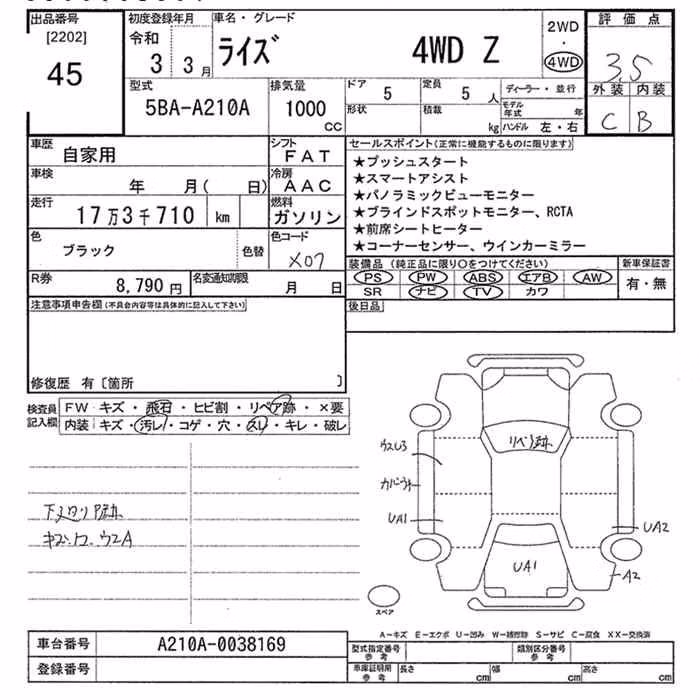 出品番号
[2202]
45
初度登録年月
令和
3 3月
車名・グレード
ライズ 4WD Z
2WD
・
4WD
評価点
3.5
外装 内装
C B
型式
5BA-A210A
排気量
1000
CC
ドア 5
定員 5 人
形状
積載 kg
ディーラー・並行
モデル年式 年
ハンドル 左・右
車歴
自家用
シフト
FAT
車検 年 月( 日)
冷房
AAC
走行
17万3千710 km
燃料
ガソリン
色
ブラック
色替
色コード
X07
R券
8,790円
名変通知期限
月 日
セールスポイント(正常に機能するものに限ります)
★プッシュスタート
★スマートアシスト
★パノラミックビューモニター
★ブラインドスポットモニター、RCTA
★前席シートヒーター
★コーナーセンサー、ウインカーミラー
装備品(純正品に限り○をつけてください)
新車保証書
PS PW ABS エアB AW
SR ナビ TV カワ
有・無
後日品
注意事項申告欄(不具合内容等は具体的に記入して下さい)
修復歴 有〔箇所 〕
検査員
記入欄
FW キズ・飛石・ヒビ割・リペア跡・×要
内装 キズ・汚レ・コゲ・穴・スレ・キレ・破レ
リペア跡
カバーウキ
UA1
UA2
UA1
A2
スペア
A-キズ E-エクボ U-凹み W-補修跡 S-サビ C-腐食 XX-交換済
車台番号
A210A-0038169
登録番号
型式指定番号
参考
類別区分番号
参考
車庫証明用
参考
長さ cm
幅 cm
高さ cm